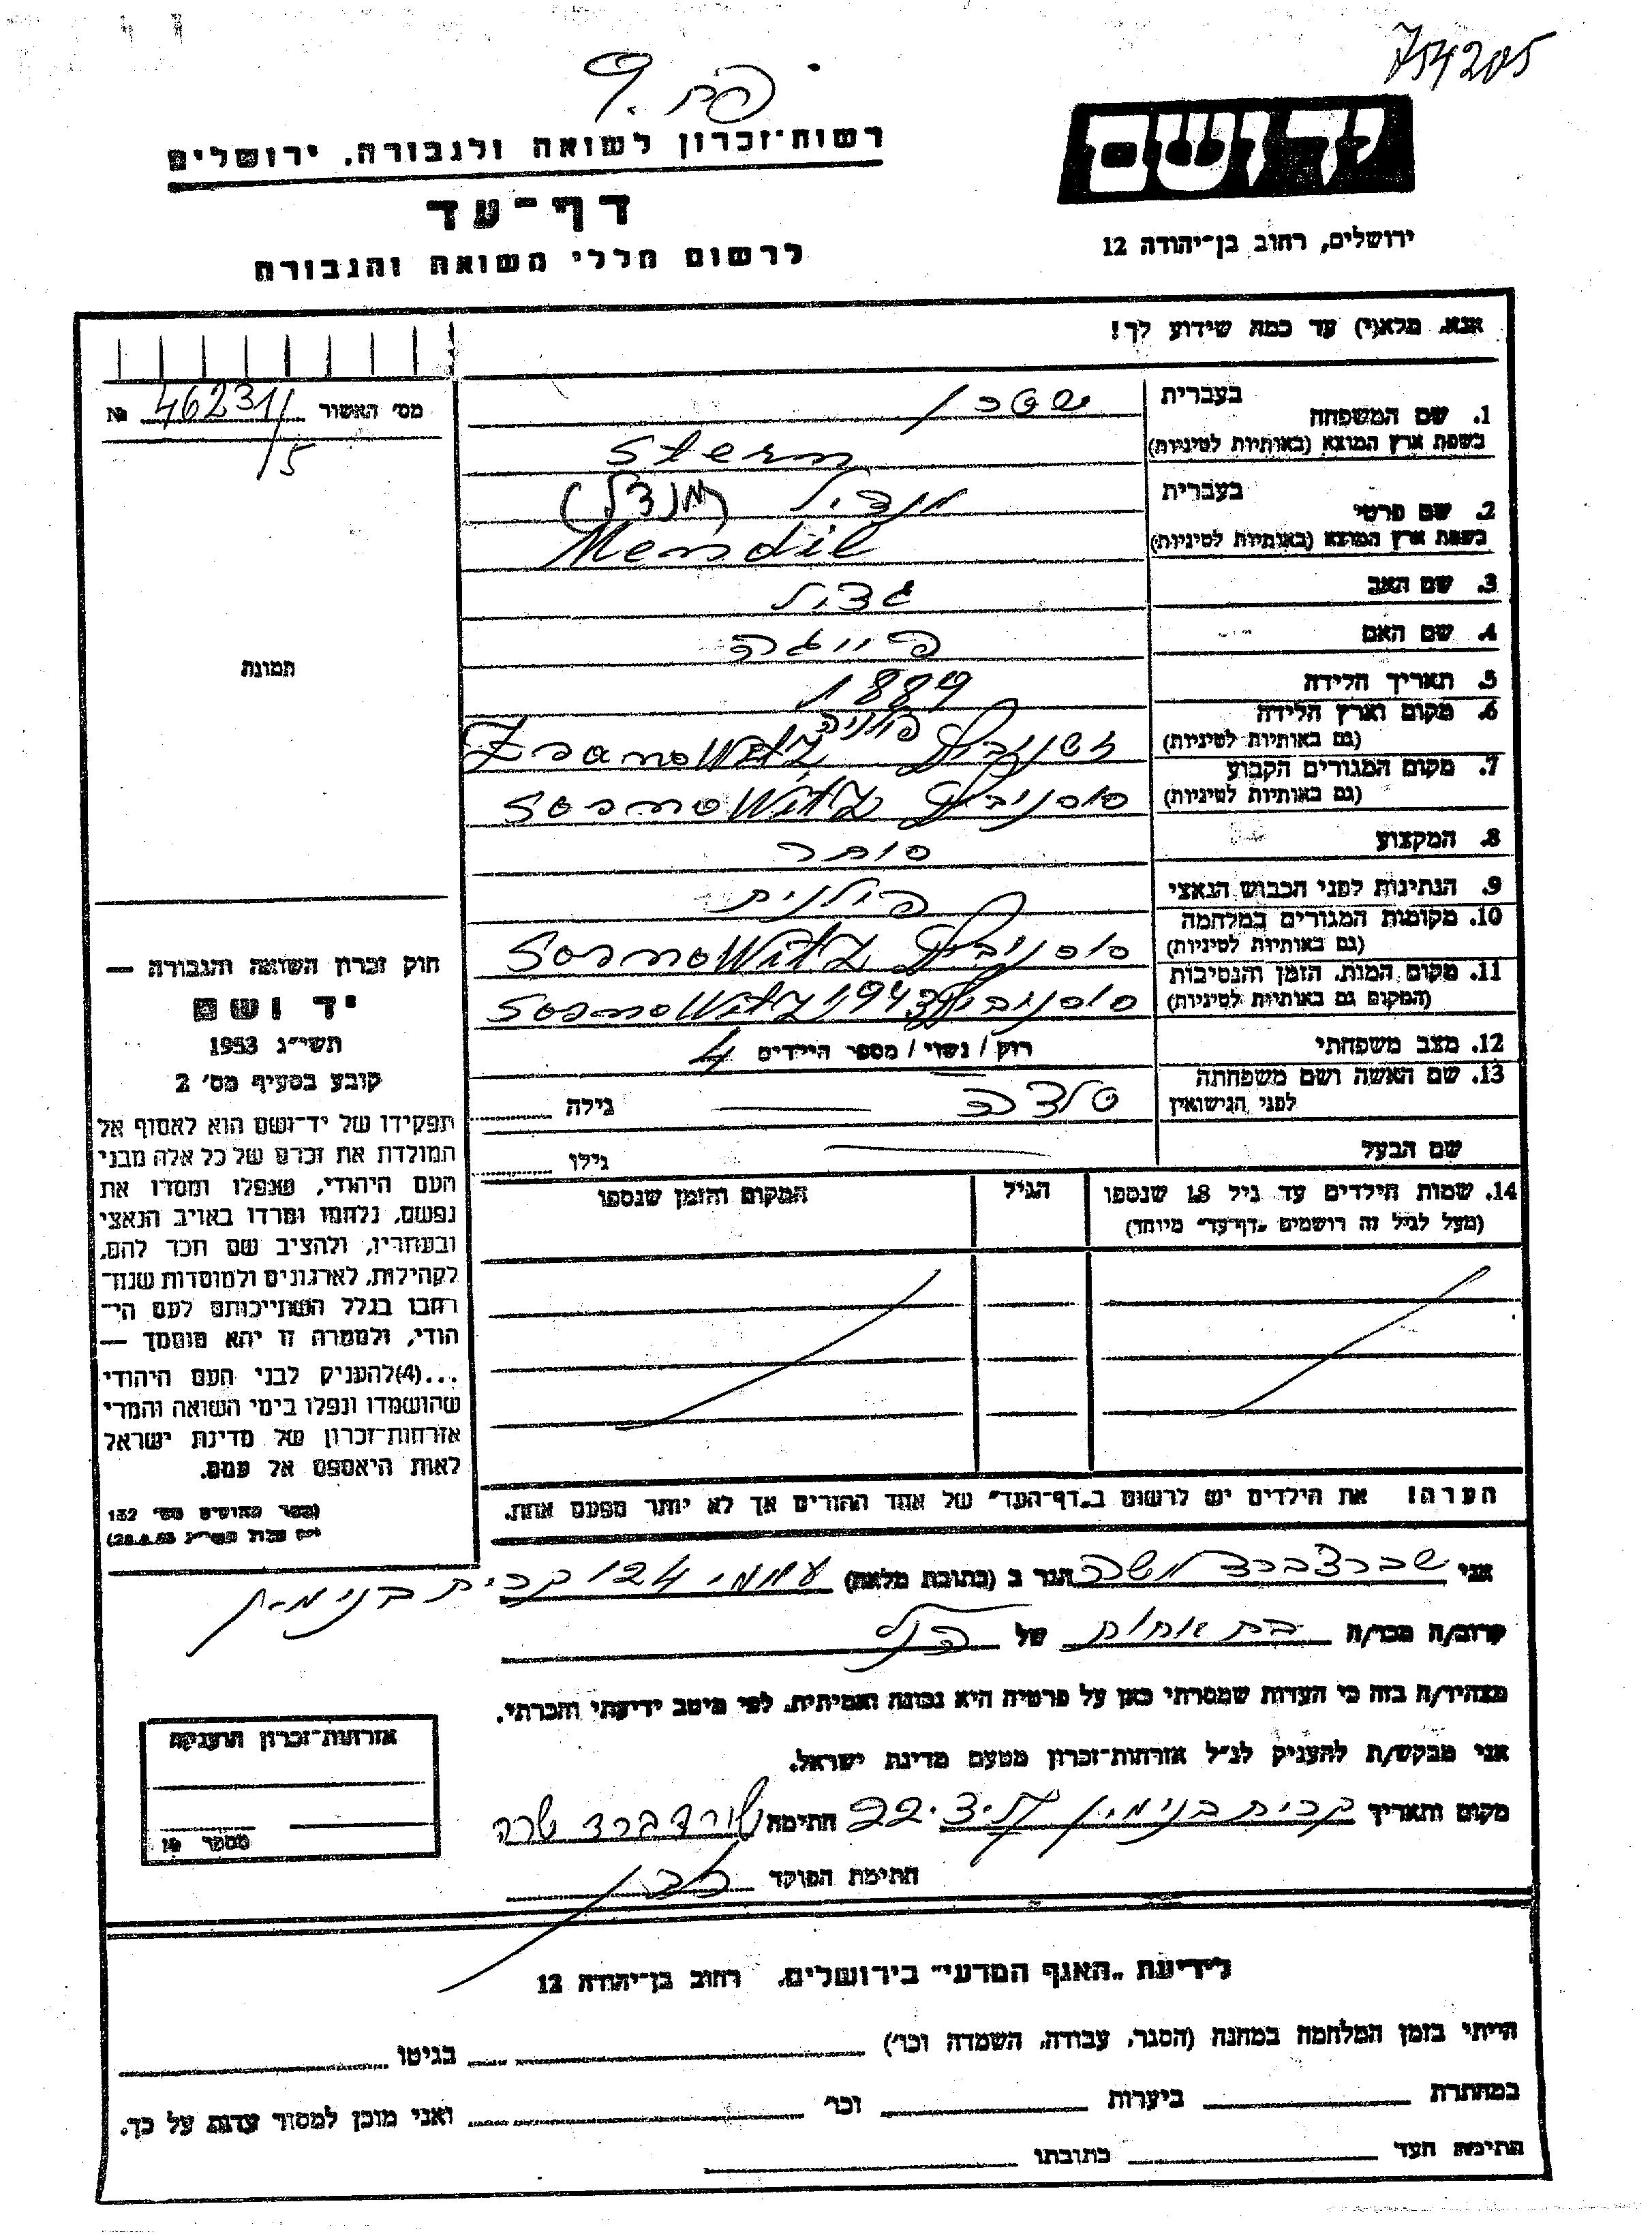 754205
פח. 9
יד ושם
רשות־זכרון לשואה ולגבורה, ירושלים
דף־עד
לרשום חללי השואה והגבורה
ירושלים, רחוב בן־יהודה 12
אנא, מלא(י) עד כמה שידוע לך!
מס' האשור 46231/5 №
תמונה
1. שם המשפחה בעברית שטרן
בשפת ארץ המוצא (באותיות לטיניות) Stern
2. שם פרטי בעברית מנדיל (מנדל)
בשפת ארץ המוצא (באותיות לטיניות) Mendil
3. שם האב גדיל
4. שם האם פייגה
5. תאריך הלידה 1889
6. מקום וארץ הלידה פולניה
(גם באותיות לטיניות)
7. מקום המגורים הקבוע סוסנוביץ Sosnowitz
(גם באותיות לטיניות)
8. המקצוע סוחר
9. הנתינות לפני הכבוש הנאצי פולנית
10. מקומות המגורים במלחמה סוסנוביץ Sosnowitz
(גם באותיות לטיניות)
11. מקום המות, הזמן והנסיבות סוסנוביץ 1943 Sosnowitz
(המקום גם באותיות לטיניות)
12. מצב משפחתי רוק / נשוי / מספר הילדים 4
13. שם האשה ושם משפחתה גילה
לפני הנישואין
שם הבעל גילו
14. שמות הילדים עד גיל 18 שנספו הגיל המקום והזמן שנספו
(מעל לגיל זה רושמים "דף־עד" מיוחד)
הערה! את הילדים יש לרשום ב"דף־העד" של אחד ההורים אך לא יותר מפעם אחת.
חוק זכרון השואה והגבורה —
יד ושם
תשי"ג 1953
קובע בסעיף מס' 2
תפקידו של יד־ושם הוא לאסוף אל
המולדת את זכרם של כל אלה מבני
העם היהודי, שנפלו ומסרו את
נפשם, נלחמו ומרדו באויב הנאצי
ובעוזריו, ולהציב שם וזכר להם,
לקהילות, לארגונים ולמוסדות שנח־
רבו בגלל השתייכותם לעם הי־
הודי, ולמטרה זו יהא מוסמך —
...(4) להעניק לבני העם היהודי
שהושמדו ונפלו בימי השואה והמרי
אזרחות־זכרון של מדינת ישראל
לאות היאספם אל עמם.
(ספר החוקים מס' 132
28.8.53)
אני שורצברד שרה הגר ב (כתובת מלאה) עממי 124 קרית בנימין
קרוב/ה מכר/ה בת אחות של הנ"ל
מצהיר/ה בזה כי העדות שמסרתי כאן על פרטיה היא נכונה ואמיתית, לפי מיטב ידיעתי והכרתי.
אני מבקש/ת להעניק לנ"ל אזרחות־זכרון מטעם מדינת ישראל.
מקום ותאריך קרית בנימין חתימה שורצברד שרה
חתימת הפוקד
אזרחות־זכרון הוענקה
מספר №
לידיעת "האגף המדעי" בירושלים, רחוב בן־יהודה 12
הייתי בזמן המלחמה במחנה (הסגר, עבודה, השמדה וכו') בגיטו
במחתרת ביערות וכו' ואני מוכן למסור עדות על כך.
חתימת העד כתובתו